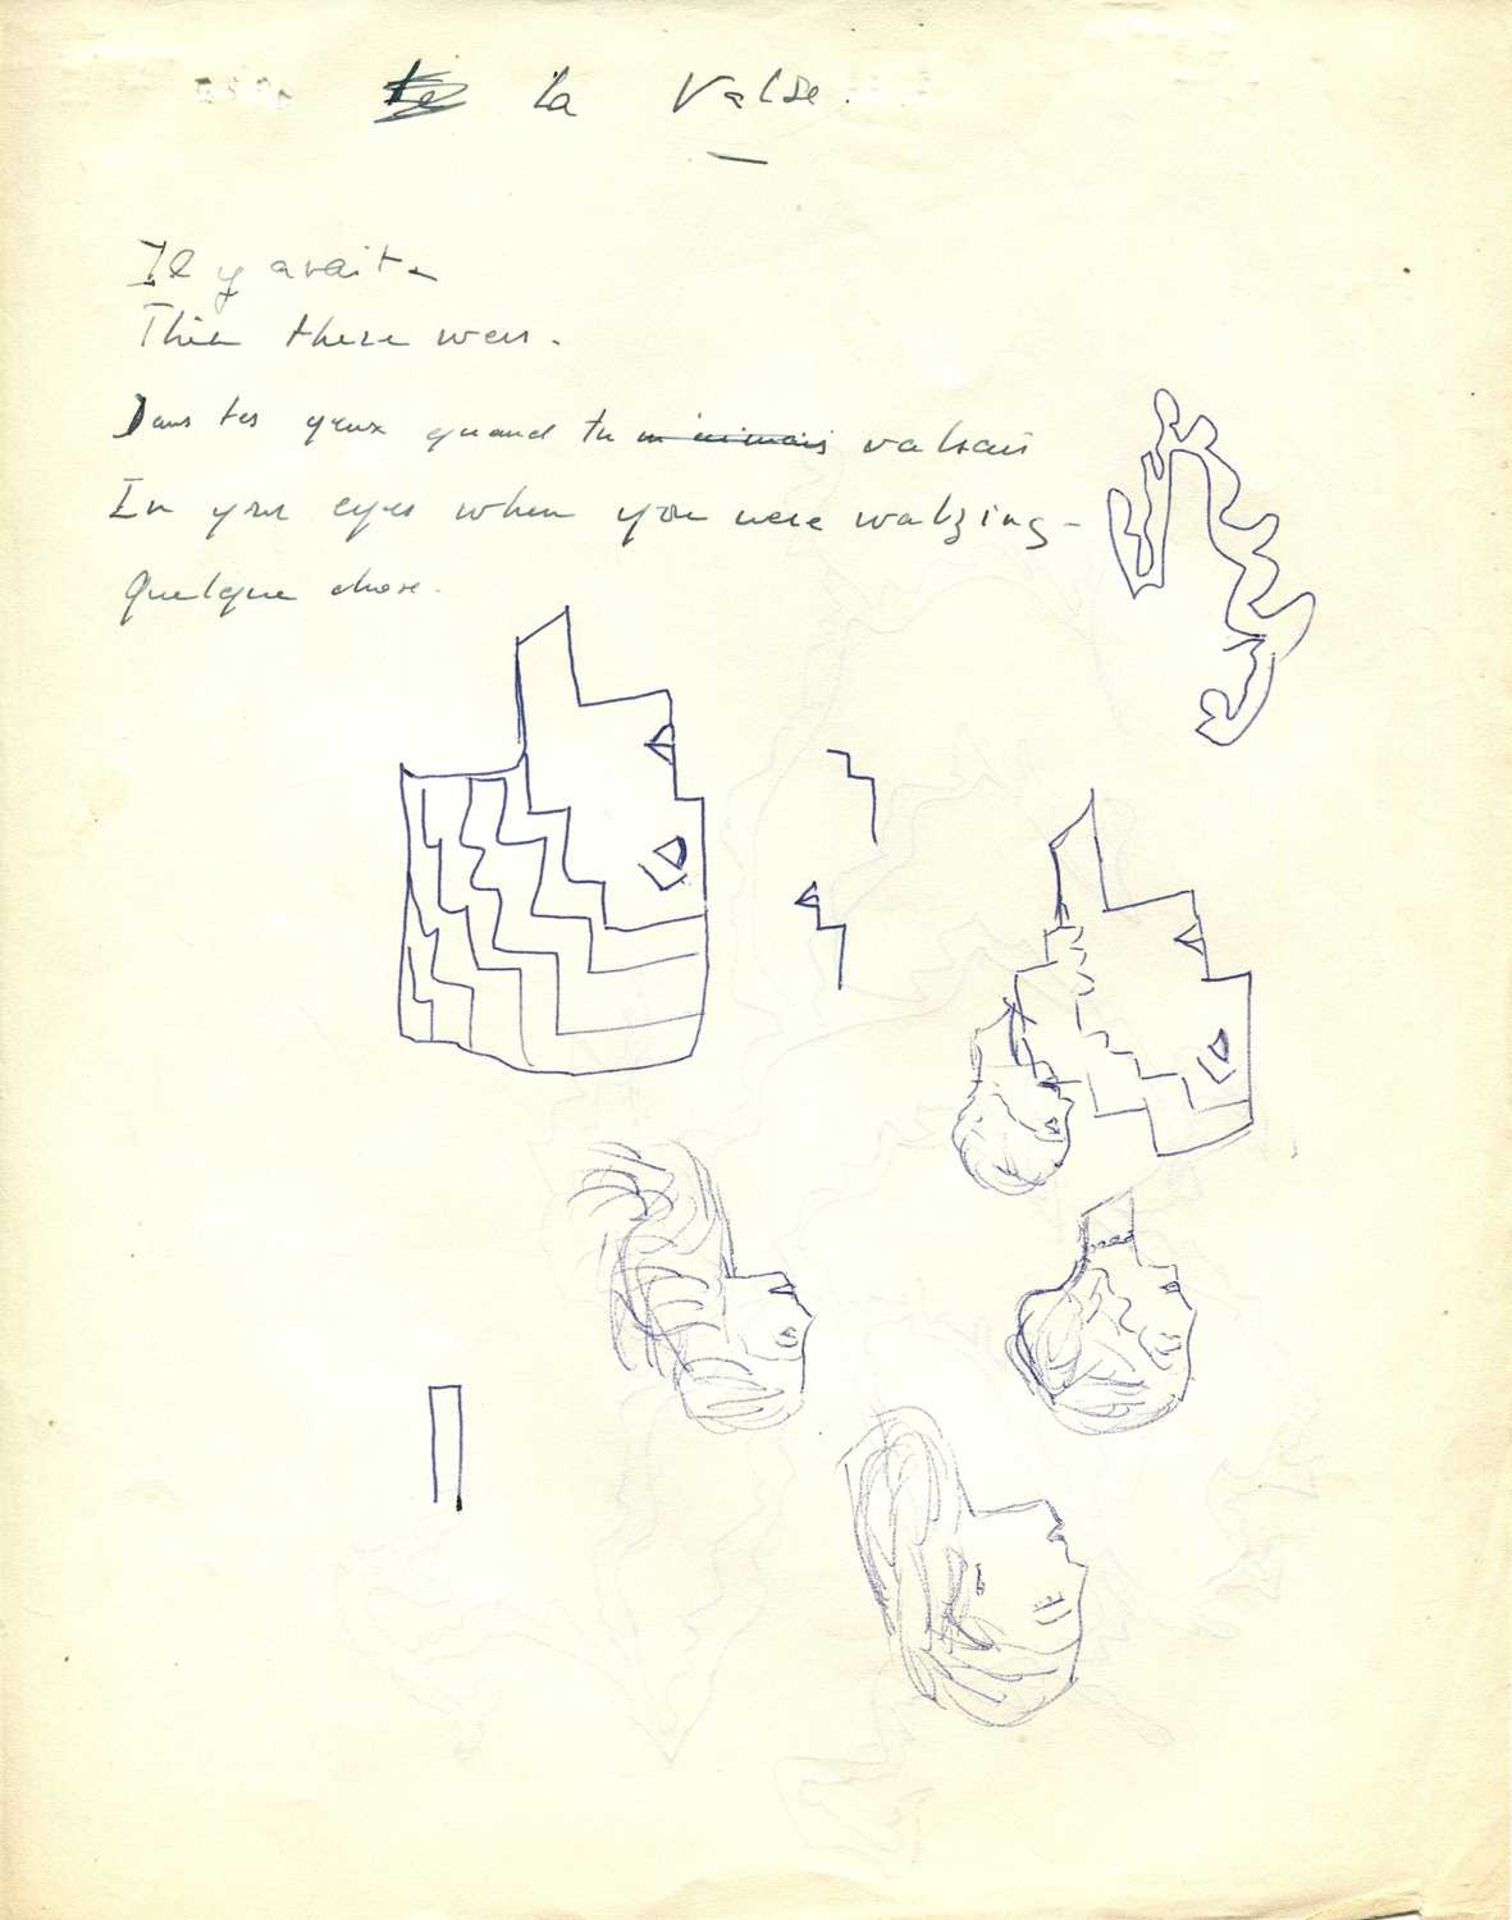 La Valse.
Il y avait -
Then there was.
Dans tes yeux quand tu valsais
In your eyes when you were walzing -
Quelque chose.